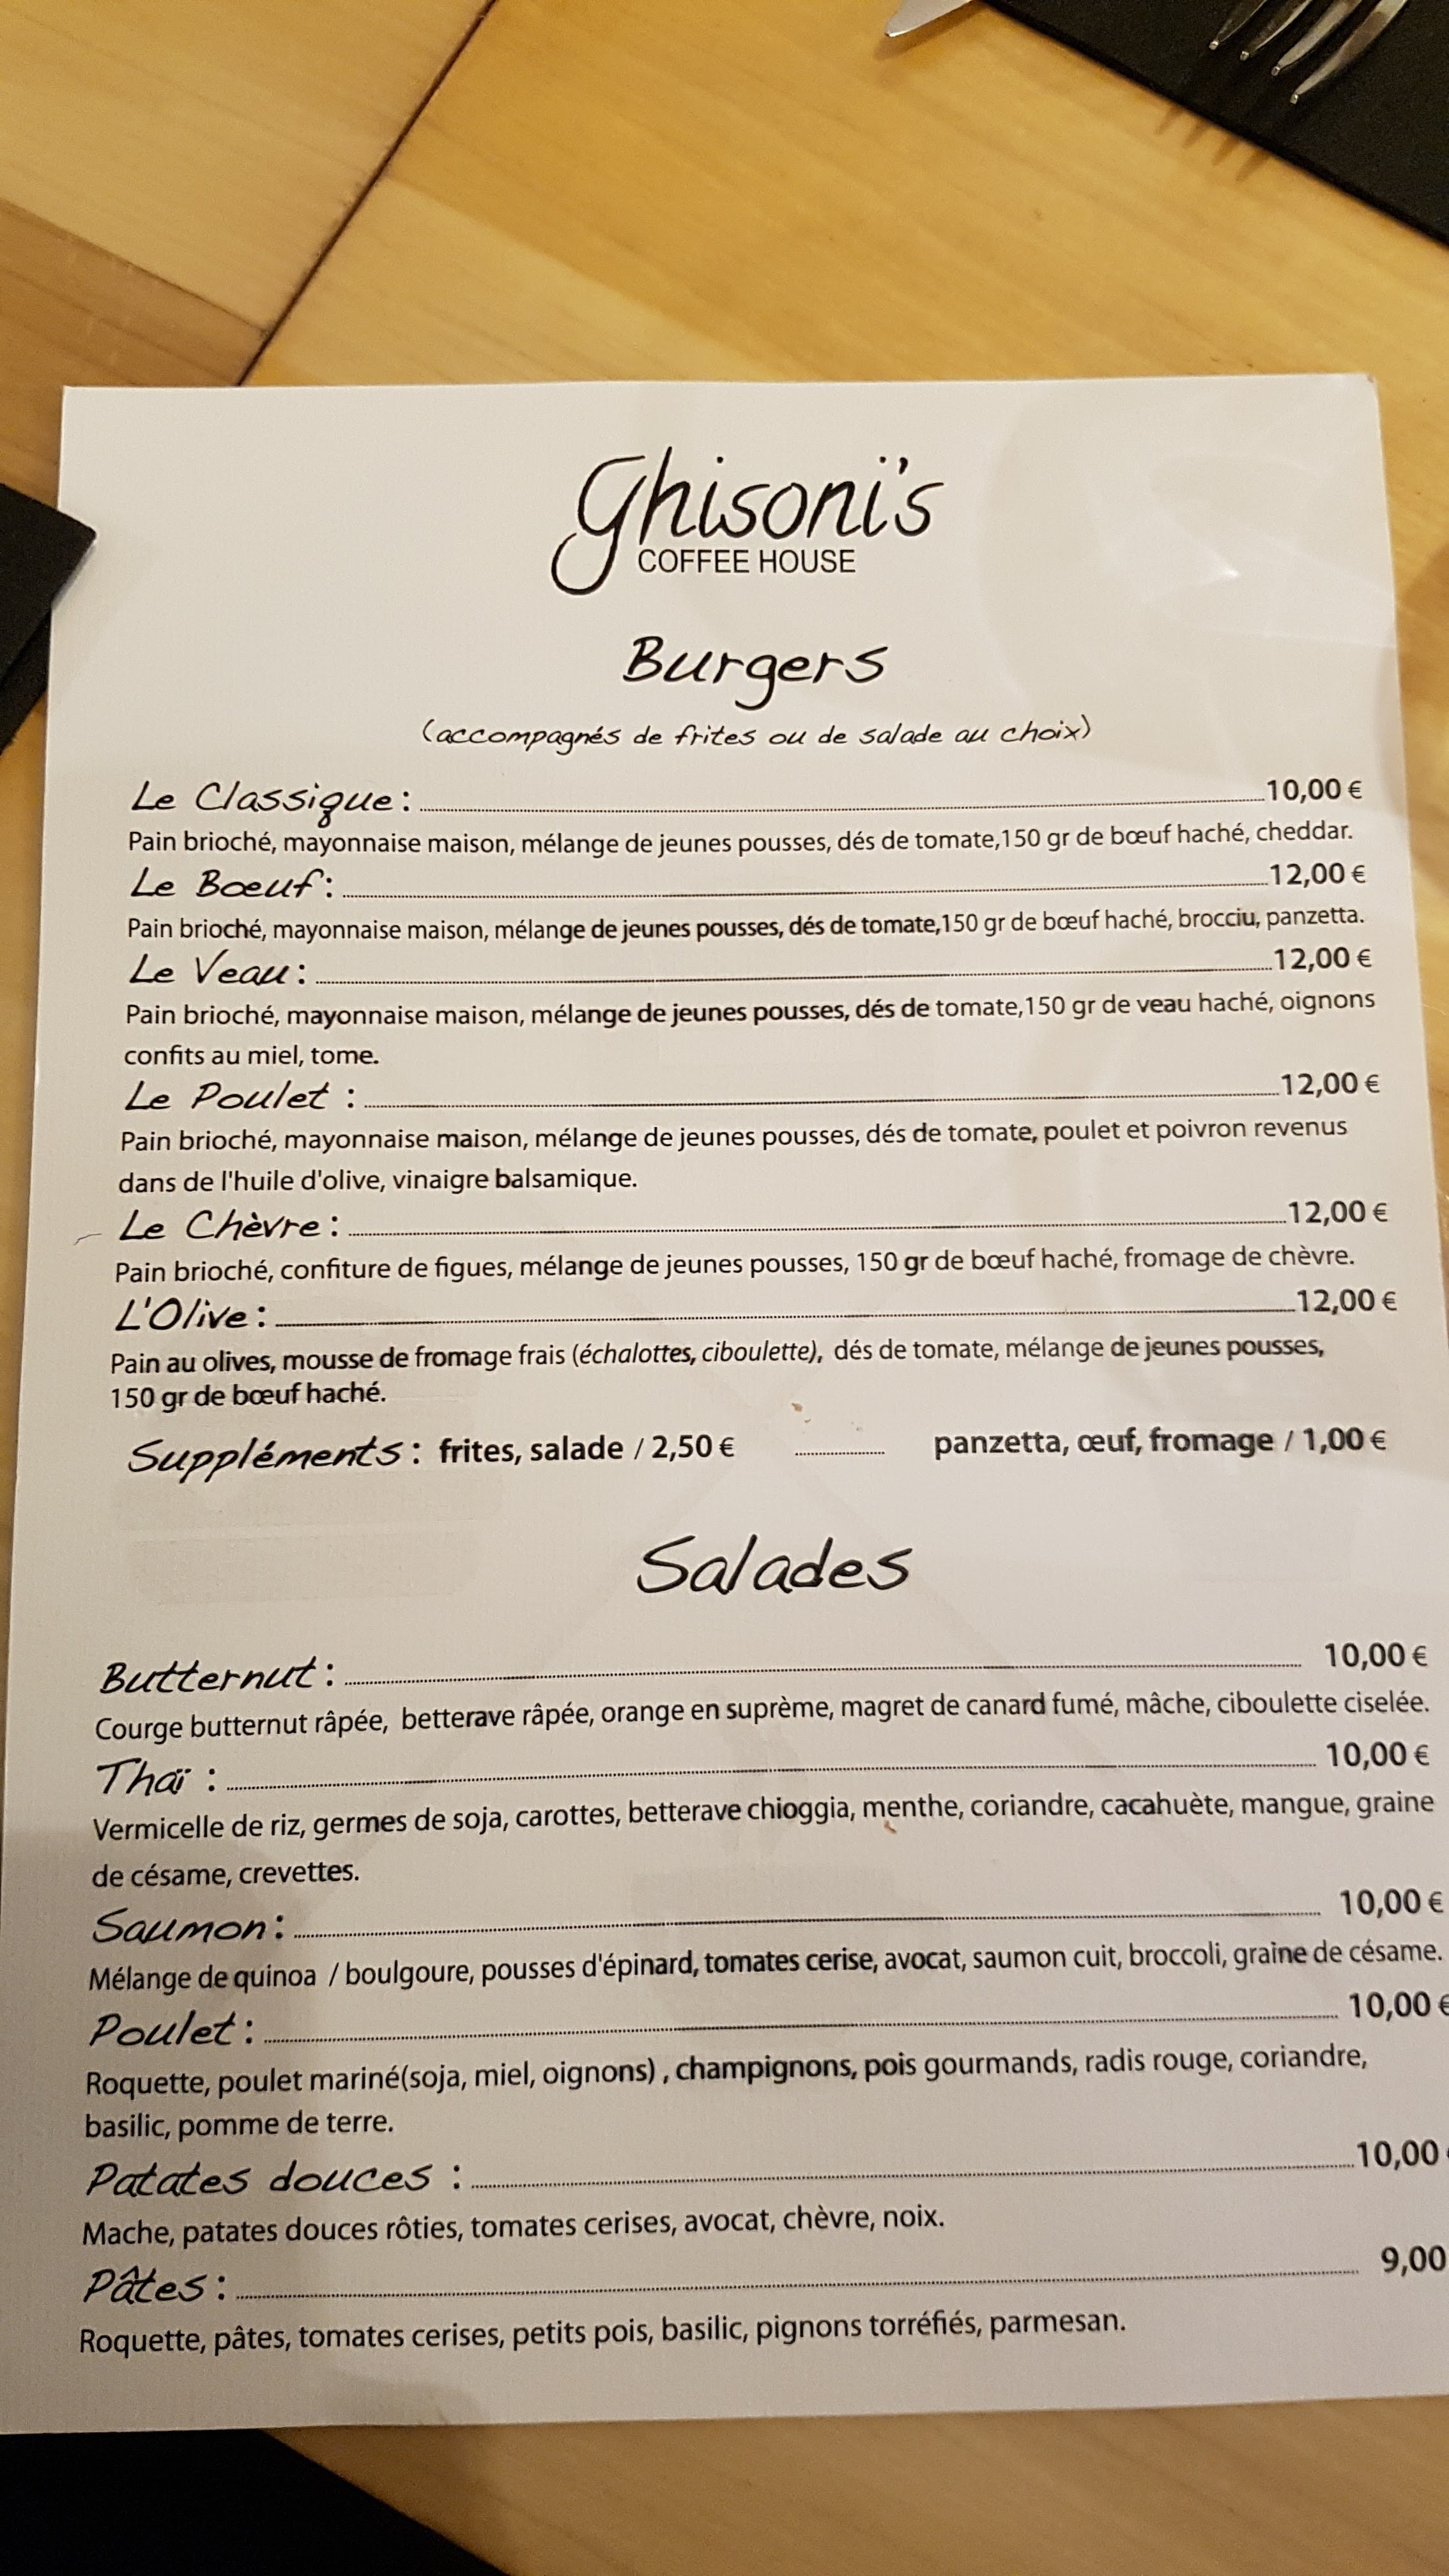 Ghisoni's
COFFEE HOUSE
Burgers
(accompagnés de frites ou de salade au choix)
Le Classique : 10,00 €
Pain brioché, mayonnaise maison, mélange de jeunes pousses, dés de tomate,150 gr de bœuf haché, cheddar.
Le Bœuf : 12,00 €
Pain brioché, mayonnaise maison, mélange de jeunes pousses, dés de tomate,150 gr de bœuf haché, brocciu, panzetta.
Le Veau : 12,00 €
Pain brioché, mayonnaise maison, mélange de jeunes pousses, dés de tomate,150 gr de veau haché, oignons
confits au miel, tome.
Le Poulet : 12,00 €
Pain brioché, mayonnaise maison, mélange de jeunes pousses, dés de tomate, poulet et poivron revenus
dans de l'huile d'olive, vinaigre balsamique.
Le Chèvre : 12,00 €
Pain brioché, confiture de figues, mélange de jeunes pousses, 150 gr de bœuf haché, fromage de chèvre.
L'Olive : 12,00 €
Pain au olives, mousse de fromage frais (échalottes, ciboulette), dés de tomate, mélange de jeunes pousses,
150 gr de bœuf haché.
Suppléments : frites, salade / 2,50 € panzetta, œuf, fromage / 1,00 €
Salades
Butternut : 10,00 €
Courge butternut râpée, betterave râpée, orange en suprème, magret de canard fumé, mâche, ciboulette ciselée.
Thaï : 10,00 €
Vermicelle de riz, germes de soja, carottes, betterave chioggia, menthe, coriandre, cacahuète, mangue, graine
de césame, crevettes.
Saumon : 10,00 €
Mélange de quinoa / boulgoure, pousses d'épinard, tomates cerise, avocat, saumon cuit, broccoli, graine de césame.
Poulet : 10,00 €
Roquette, poulet mariné(soja, miel, oignons) , champignons, pois gourmands, radis rouge, coriandre,
basilic, pomme de terre.
Patates douces : 10,00
Mache, patates douces rôties, tomates cerises, avocat, chèvre, noix.
Pâtes : 9,00
Roquette, pâtes, tomates cerises, petits pois, basilic, pignons torréfiés, parmesan.